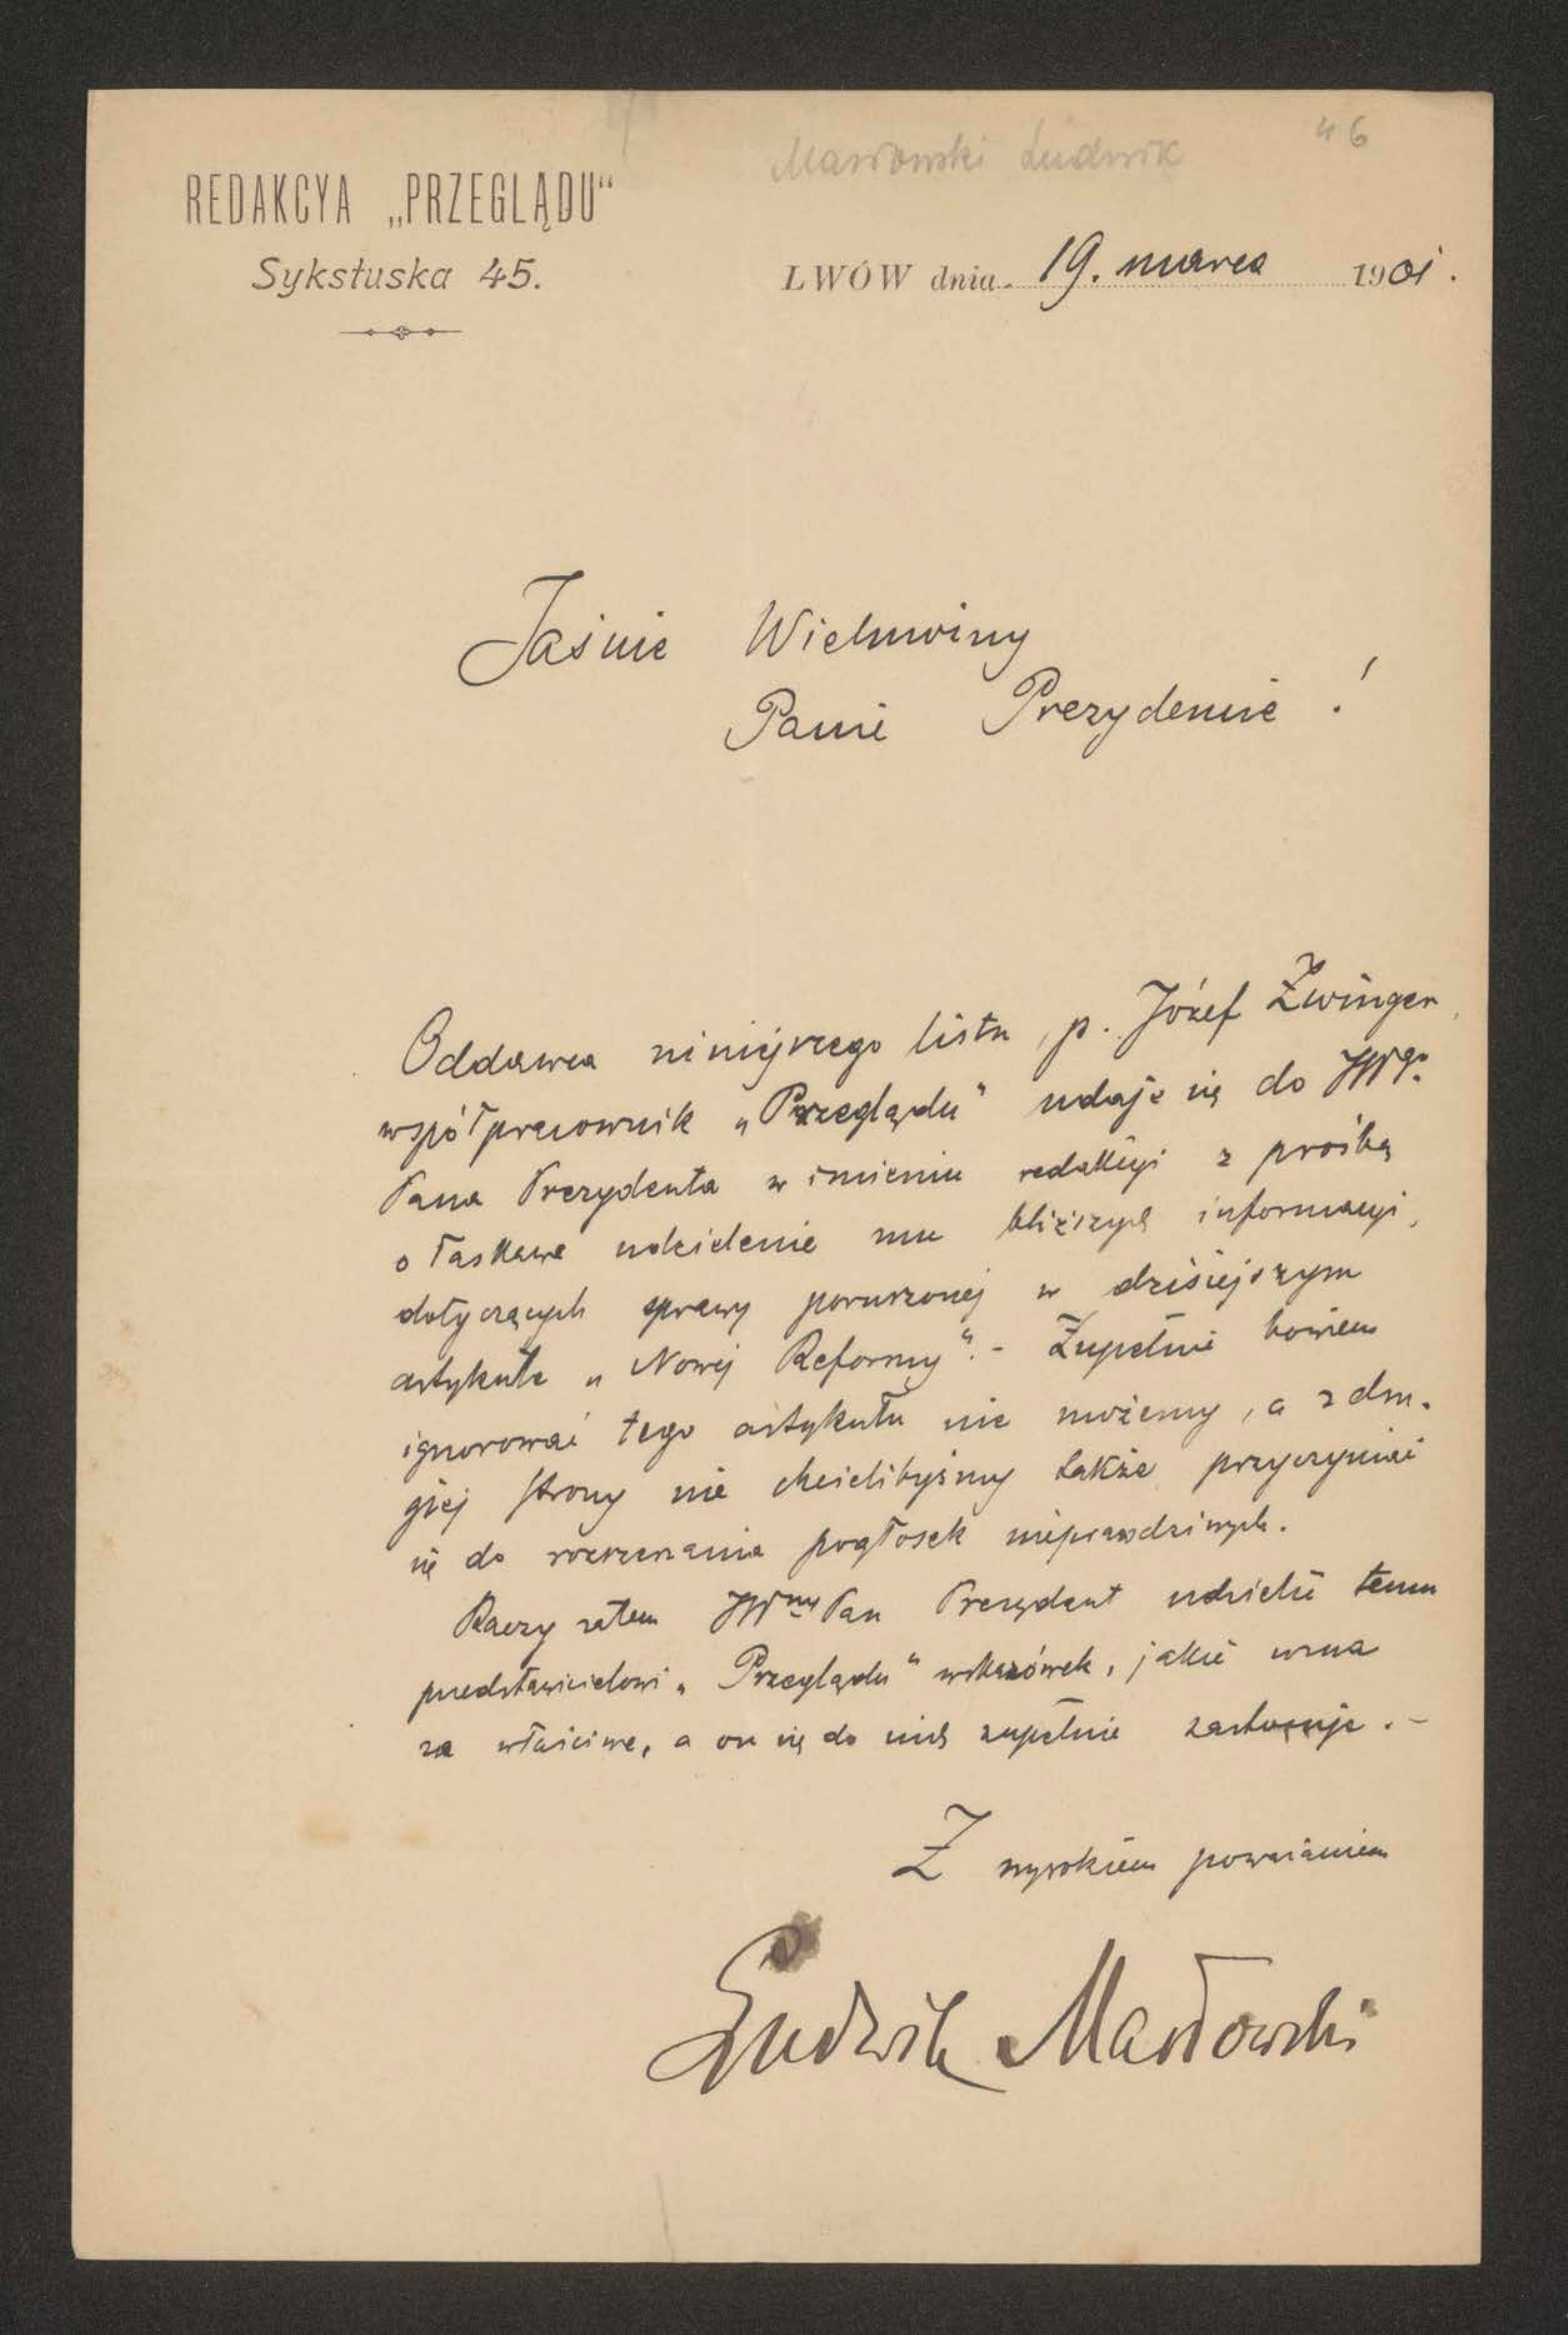 Masłowski Ludwik
46
REDAKCYA „PRZEGLĄDU“
Sykstuska 45.
LWÓW dnia 19. marca 1901.
Jaśnie Wielmożny
Panie Prezydencie!
Oddawca niniejszego listu, p. Józef Zwinger,
współpracownik „Przeglądu“ udaje się do JWgo
Pana Prezydenta w imieniu redakcyi z prośbą
o łaskawe udzielenie mu bliższych informacyi,
dotyczących sprawy poruszonej w dzisiejszym
artykule „Nowej Reformy“.- Zupełnie bowiem
ignorować tego artykułu nie możemy, a z dru-
giej strony nie chcielibyśmy także przyczyniać
się do rozszerzania pogłosek nieprawdziwych.
Raczy zatem JWny Pan Prezydent udzielić temu
przedstawicielowi „Przeglądu“ wskazówek, jakie uzna
za właściwe, a on się do nich zupełnie zastosuje.-
Z wysokiem poważaniem
Ludwik Masłowski